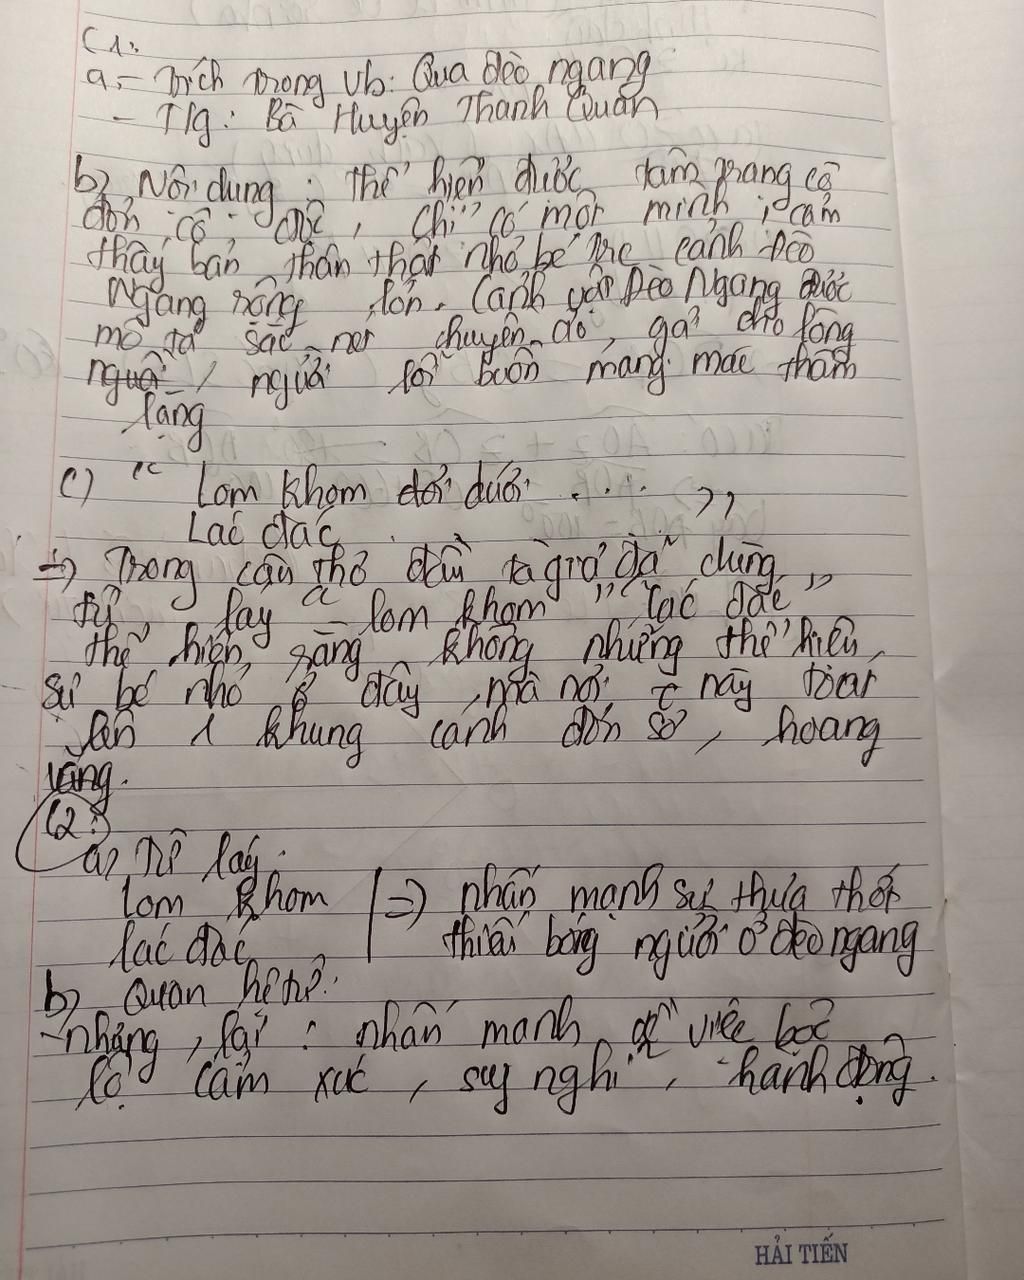 C1:
a, - Trích trong vb: Qua đèo ngang
- T/g: Bà Huyện Thanh Quan
b, Nội dung: thể hiện được tâm trạng cô
đơn, cô độc, chỉ có một mình, cảm
thấy bản thân thật nhỏ bé trc cảnh Đèo
Ngang rộng lớn. Cảnh vật Đèo Ngang được
mô tả sắc nét chuyên do, gả cho lòng
người, người lỡi buồn mang mác thầm
lặng
c) " Lom khom dưới
Lác đác "
=> Trong câu thơ đầu tá giả đã dùng
từ láy " lom khom " " lác đác "
thể hiện rằng không những thể hiện
sự bé nhỏ ở đây, mà nơi này toát
lên 1 khung cảnh đơn sơ, hoang
vắng.
C2:
a, Từ láy:
lom khom => nhấn mạnh sự thưa thớt
lác đác thiếu bóng người ở đèo ngang
b, Quan hệ từ:
- nhưng, lại: nhấn mạnh về việc bộc
lộ cảm xúc, suy nghĩ, hành động.
HẢI TIẾN